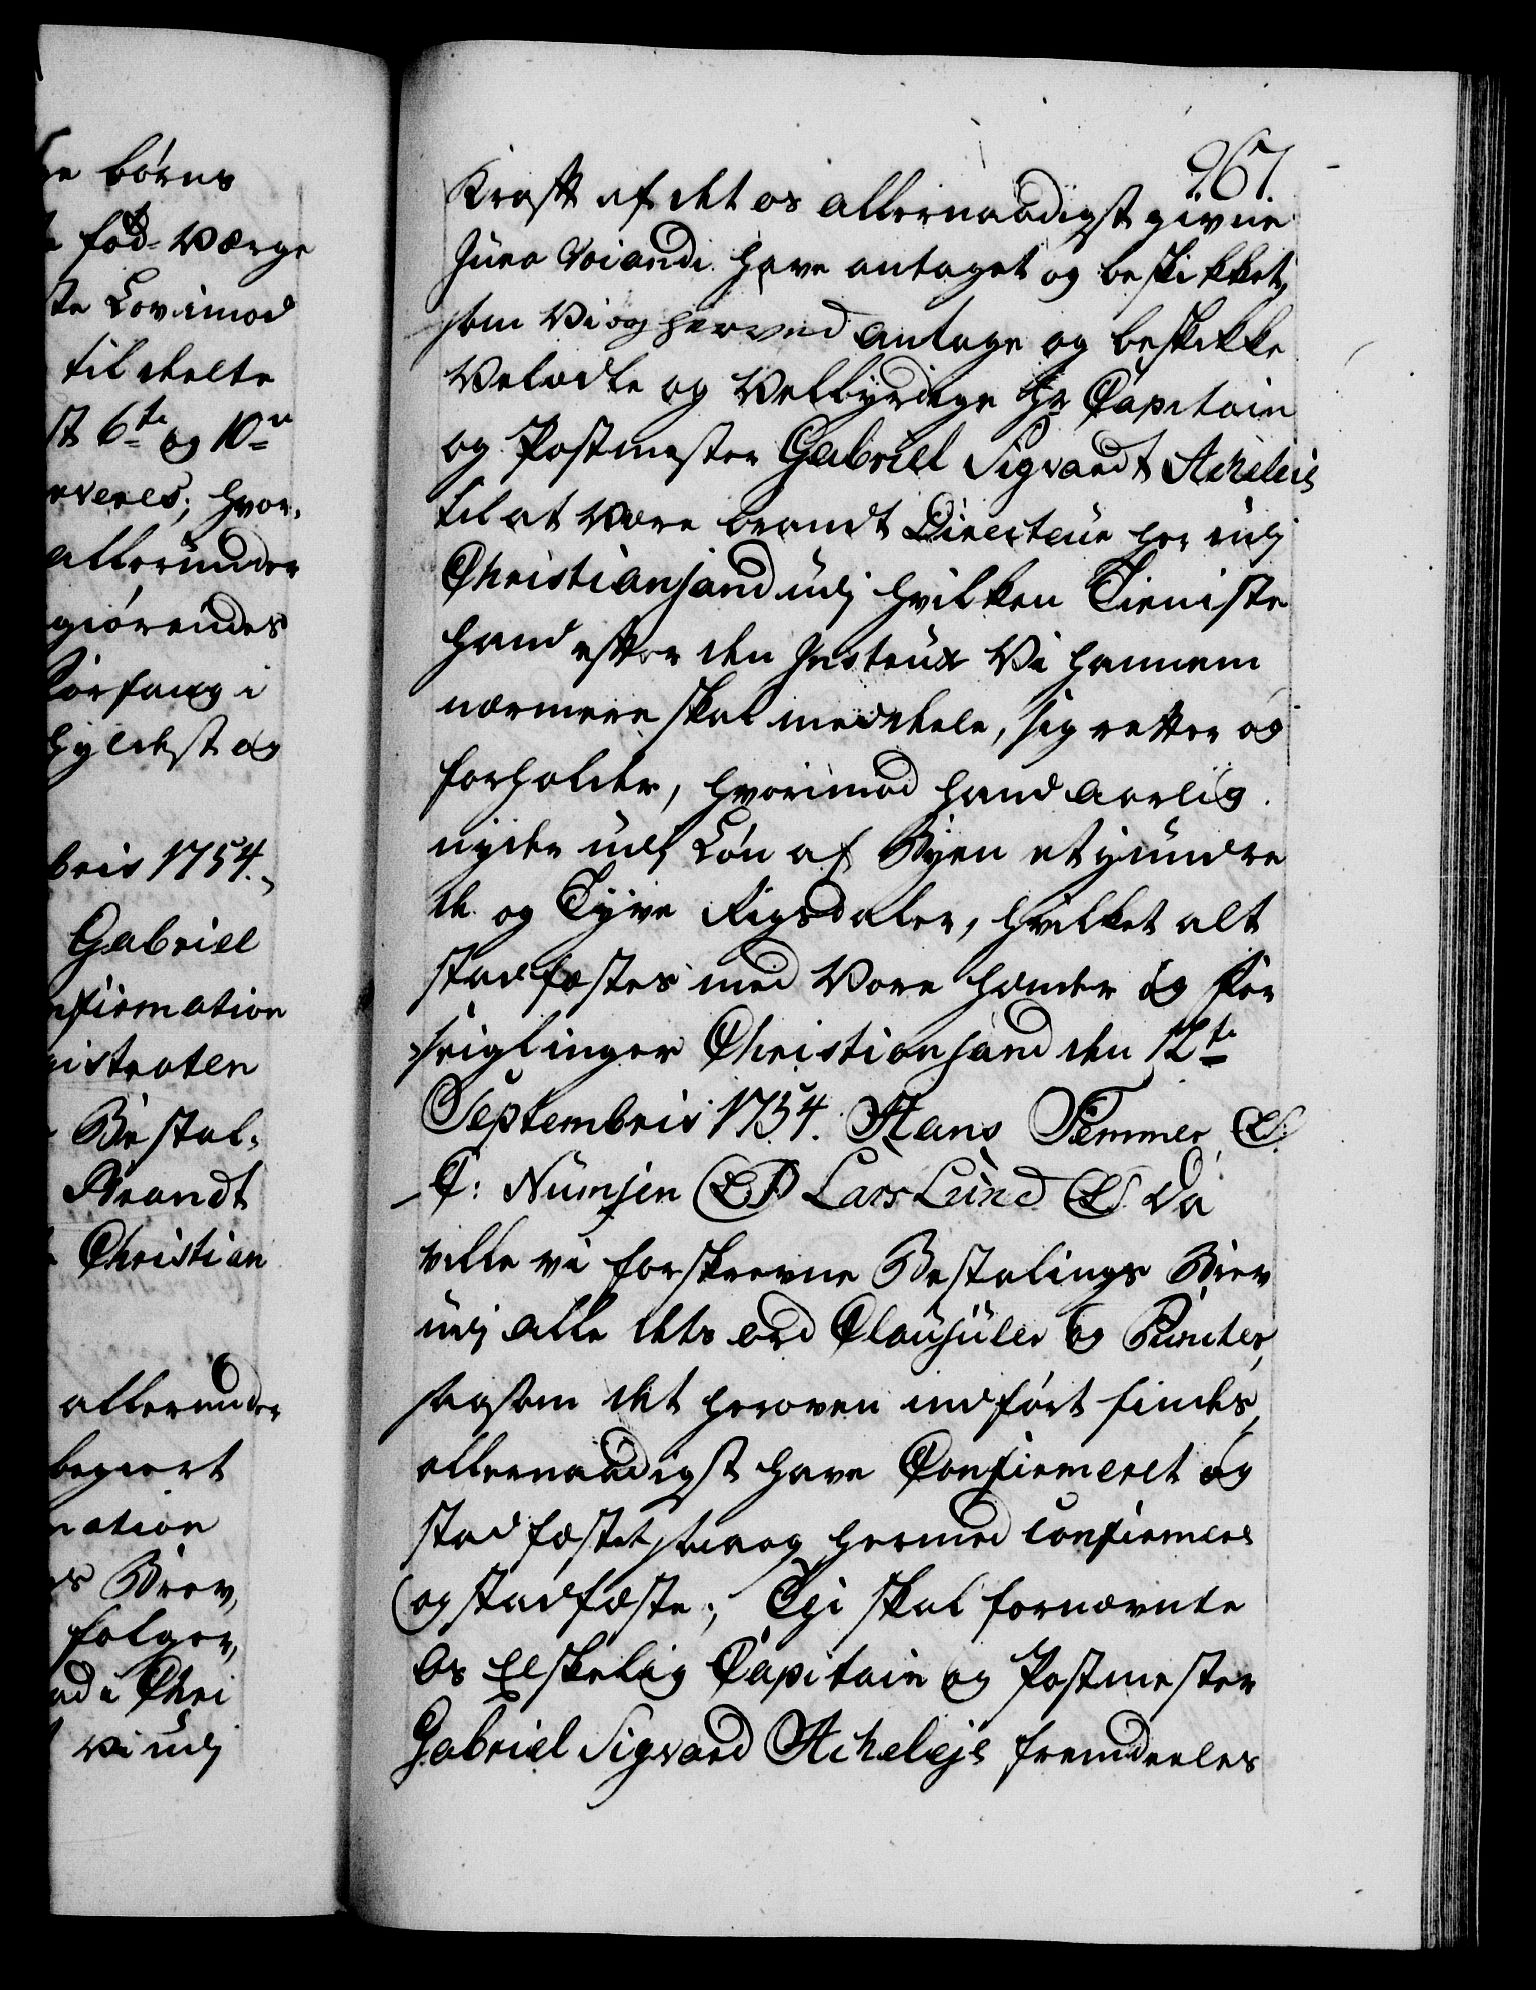 børns
fød-Værge
Lovimod
til deelte
st 6te og 10de
hvor,
allerunder
giørendes
Forfang i
hyldest og
bris 1754.
Gabriel
nfirmation
gistraten
Bestal:
Brandt
Christian
allerunder
begiert
mation
Brev,
følger,
Chri
Vi udj
267.
Kraft af det os allernaadigst givne
Jura vocandi have antaget og beskikket,
som Vi og herved antage og beskikke
Velædle og Velbyrdige Hr Capitain
og Postmester Gabriel Sigvardt Acheleis
til at være brandt Directeur her udj
Christiansand udj hvilken Tieniste
hand efter den Instrux Vi hannem
nærmere skal meddeele, sig retter og
forholder, hvorimod hand aarlig
nyder udj Løn af Byen et hundre
de og Tyve Rigsdaler, hvilket alt
stadfæstes med Vore hænder og For
seiglinger Christiansand den 12te
Septembris 1754. Hans Pemmer LS.
C: Numsen (LS) Lars Lund (LS) Da
ville vi forskrevne Bestalings Brev
udj alle dets ord Clausuler og Puncter,
saasom det heroven indført findes,
allernaadigst have Confirmeret og
stadfæstet, saa og hermed confirmere
og stadfæste; Thi skal fornævnte
Os Elskelig Capitain og Postmester
Gabriel Sigvard Achelejs fremdeeles